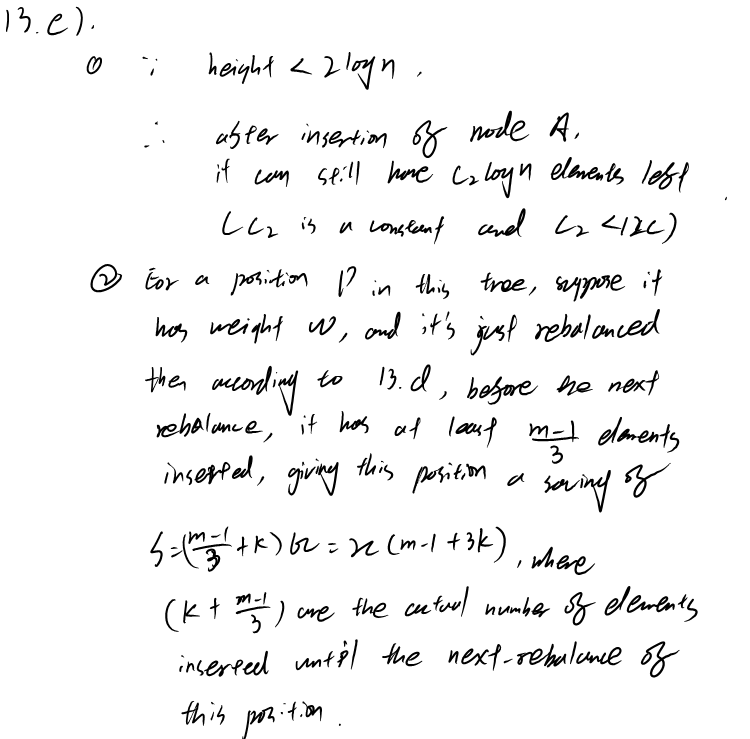 13.e).
① ∵ height < 2 log n,
∴ after insertion of node A,
it can still have C₂ log n elements left
(C₂ is a constant and C₂ < 12C)
② For a position P in this tree, suppose it
has weight w, and it's just rebalanced
then according to 13.d, before the next
rebalance, it has at least (m-1)/3 elements
inserted, giving this position a saving of
S = ((m-1)/3 + k) 6c = 2c (m-1+3k), where
(k + (m-1)/3) are the actual number of elements
inserted until the next-rebalance of
this position.